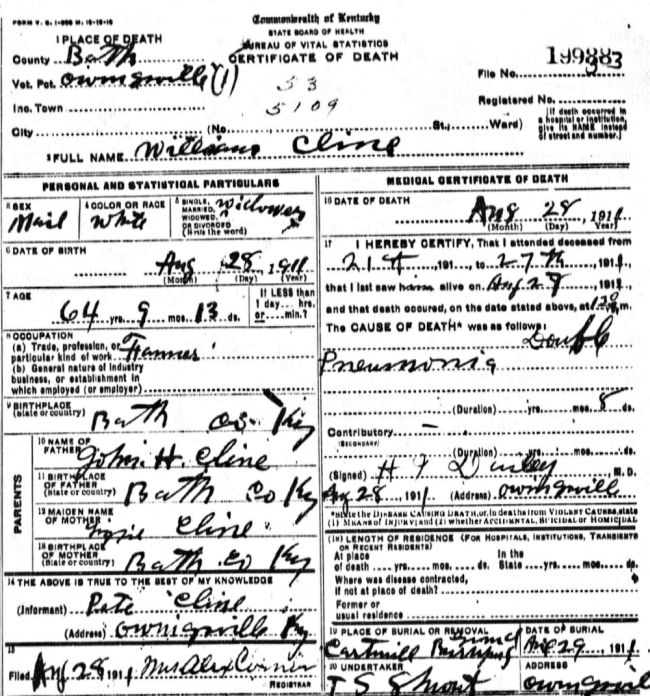 FORM V. S. 1-
Commonwealth of Kentucky
STATE BOARD OF HEALTH
BUREAU OF VITAL STATISTICS
CERTIFICATE OF DEATH
1 PLACE OF DEATH
County Bath
Vot. Pct. Owingsville (1)
Inc. Town
City (No. St., Ward)
53
5109
File No. 19983
Registered No.
[If death occurred in a hospital or institution, give its NAME instead of street and number.]
2 FULL NAME William Cline
PERSONAL AND STATISTICAL PARTICULARS
3 SEX Mail
4 COLOR OR RACE White
5 SINGLE, MARRIED, WIDOWED, OR DIVORCED (Write the word) Widower
6 DATE OF BIRTH Aug 28, 1911
(Month) (Day) (Year)
7 AGE 64 yrs. 9 mos. 13 ds.
If LESS than 1 day hrs. or min.?
8 OCCUPATION
(a) Trade, profession, or particular kind of work Farmer
(b) General nature of industry business, or establishment in which employed (or employer)
9 BIRTHPLACE
(State or country) Bath Co Ky
PARENTS
10 NAME OF FATHER John H. Cline
11 BIRTHPLACE OF FATHER
(State or country) Bath Co Ky
12 MAIDEN NAME OF MOTHER Cline
13 BIRTHPLACE OF MOTHER
(State or country) Bath Co Ky
14 THE ABOVE IS TRUE TO THE BEST OF MY KNOWLEDGE
(Informant) Pete Cline
(Address) Owingsville Ky
15
Filed Aug 28 1911 Mrs Alex Conner
REGISTRAR
MEDICAL CERTIFICATE OF DEATH
16 DATE OF DEATH
Aug 28, 1911
(Month) (Day) (Year)
17 I HEREBY CERTIFY, That I attended deceased from
21st, 191, to 27th, 1911
that I last saw him alive on Aug 27, 1911,
and that death occured, on the date stated above, at m.
The CAUSE OF DEATH* was as follows:
Double
Pneumonia
(Duration) yrs. mos. 8 ds.
Contributory
(SECONDARY)
(Duration) yrs. mos. ds.
(Signed) H M.D.
Aug 28, 1911 (Address) Owingsville
*State the DISEASE CAUSING DEATH, or, in deaths from VIOLENT CAUSES, state
(1) MEANS OF INJURY; and (2) whether ACCIDENTAL, SUICIDAL or HOMICIDAL
(18) LENGTH OF RESIDENCE (FOR HOSPITALS, INSTITUTIONS, TRANSIENTS OR RECENT RESIDENTS)
At place of death yrs. mos. ds.
In the State yrs. mos. ds.
Where was disease contracted,
if not at place of death?
Former or
usual residence
19 PLACE OF BURIAL OR REMOVAL
Cartmill Burying
DATE OF BURIAL
Aug 29, 1911
20 UNDERTAKER
T S Shrout
ADDRESS
Owingsvill